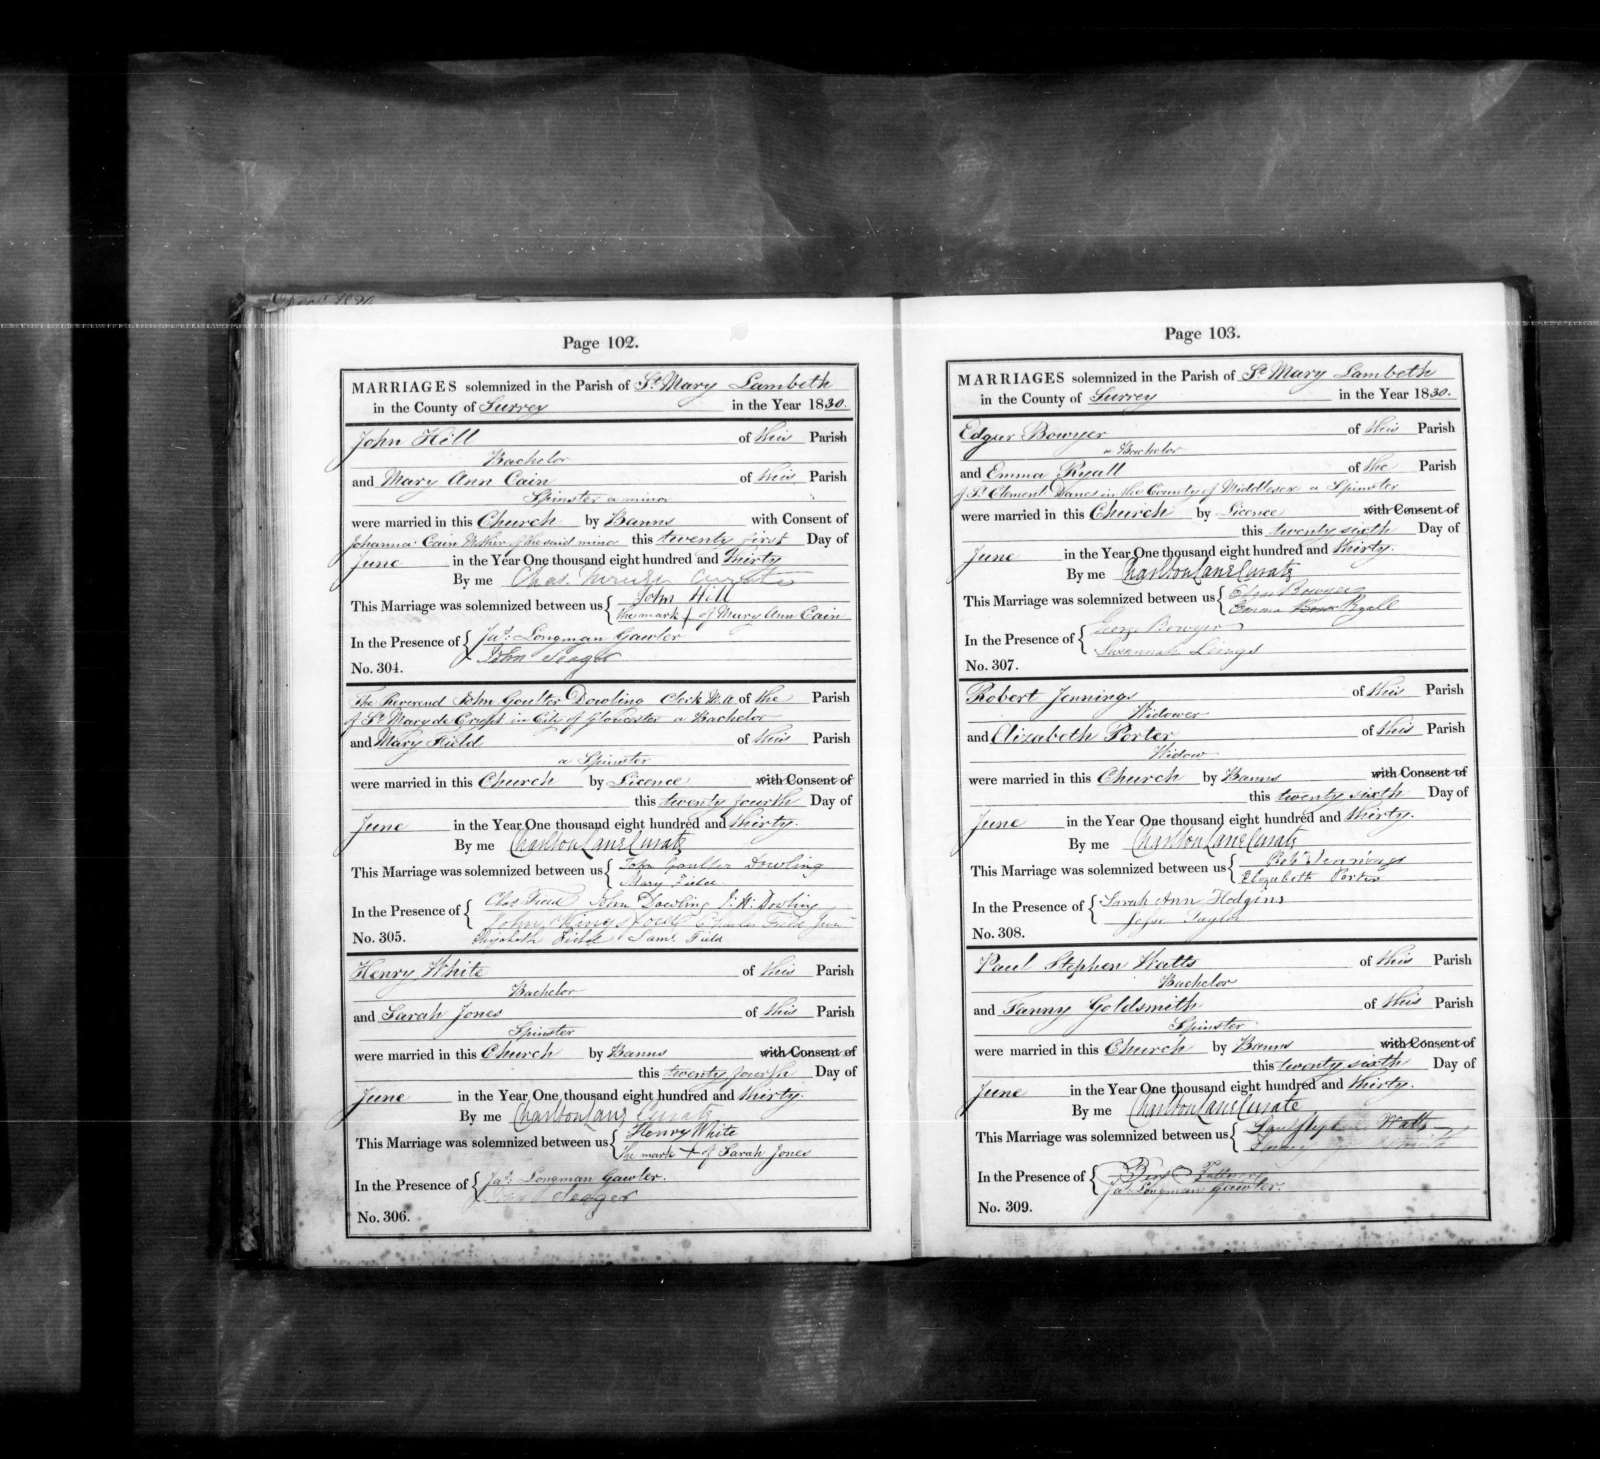 Page 102.
MARRIAGES solemnized in the Parish of St Mary Lambeth
in the County of Surrey in the Year 1830.
John Hill of this Parish
Bachelor
and Mary Ann Cain of this Parish
Spinster a minor
were married in this Church by Banns with Consent of
Johanna Cain Mother of the said minor this twenty first Day of
June in the Year One thousand eight hundred and thirty
By me Chas. Curate
This Marriage was solemnized between us { John Hill
The mark of Mary Ann Cain
In the Presence of { Jas. Longman Gawler
John Seager
No. 304.
The Reverend John Goulter Dowling Clerk M.A. of the Parish
of St Mary de Crypt in City of Gloucester a Bachelor
and Mary Field of this Parish
a Spinster
were married in this Church by Licence with Consent of
this twenty fourth Day of
June in the Year One thousand eight hundred and thirty.
By me Charlton Lane Curate
This Marriage was solemnized between us { John Goulter Dowling
Mary Field
In the Presence of { Chas Field John Dowling J. H. Dowling
John Kingsford Charles Field Junr
No. 305. Elizabeth Field Saml Field
Henry White of this Parish
Bachelor
and Sarah Jones of this Parish
Spinster
were married in this Church by Banns with Consent of
this twenty fourth Day of
June in the Year One thousand eight hundred and thirty.
By me Charlton Lane Curate
This Marriage was solemnized between us { Henry White
The mark + of Sarah Jones
In the Presence of { Jas. Longman Gawler.
John Seager
No. 306.
Page 103.
MARRIAGES solemnized in the Parish of St Mary Lambeth
in the County of Surrey in the Year 1830.
Edgar Bowyer of this Parish
a Bachelor
and Emma Ryall of the Parish
of St Clement Danes in the County of Middlesex a Spinster
were married in this Church by Licence with Consent of
this twenty sixth Day of
June in the Year One thousand eight hundred and thirty.
By me Charlton Lane Curate
This Marriage was solemnized between us { Edgar Bowyer
Emma Ryall
In the Presence of { George Bowyer
Susannah
No. 307.
Robert Jennings of this Parish
Widower
and Elizabeth Porter of this Parish
Widow
were married in this Church by Banns with Consent of
this twenty sixth Day of
June in the Year One thousand eight hundred and thirty.
By me Charlton Lane Curate
This Marriage was solemnized between us { Robt Jennings
Elizabeth Porter
In the Presence of { Sarah Ann Hodgins
Jesse Taylor
No. 308.
Paul Stephen Watts of this Parish
Bachelor
and Fanny Goldsmith of this Parish
Spinster
were married in this Church by Banns with Consent of
this twenty sixth Day of
June in the Year One thousand eight hundred and thirty.
By me Charlton Lane Curate
This Marriage was solemnized between us { Paul Stephen Watts
Fanny Goldsmith
In the Presence of {
Jas. Longman Gawler.
No. 309.